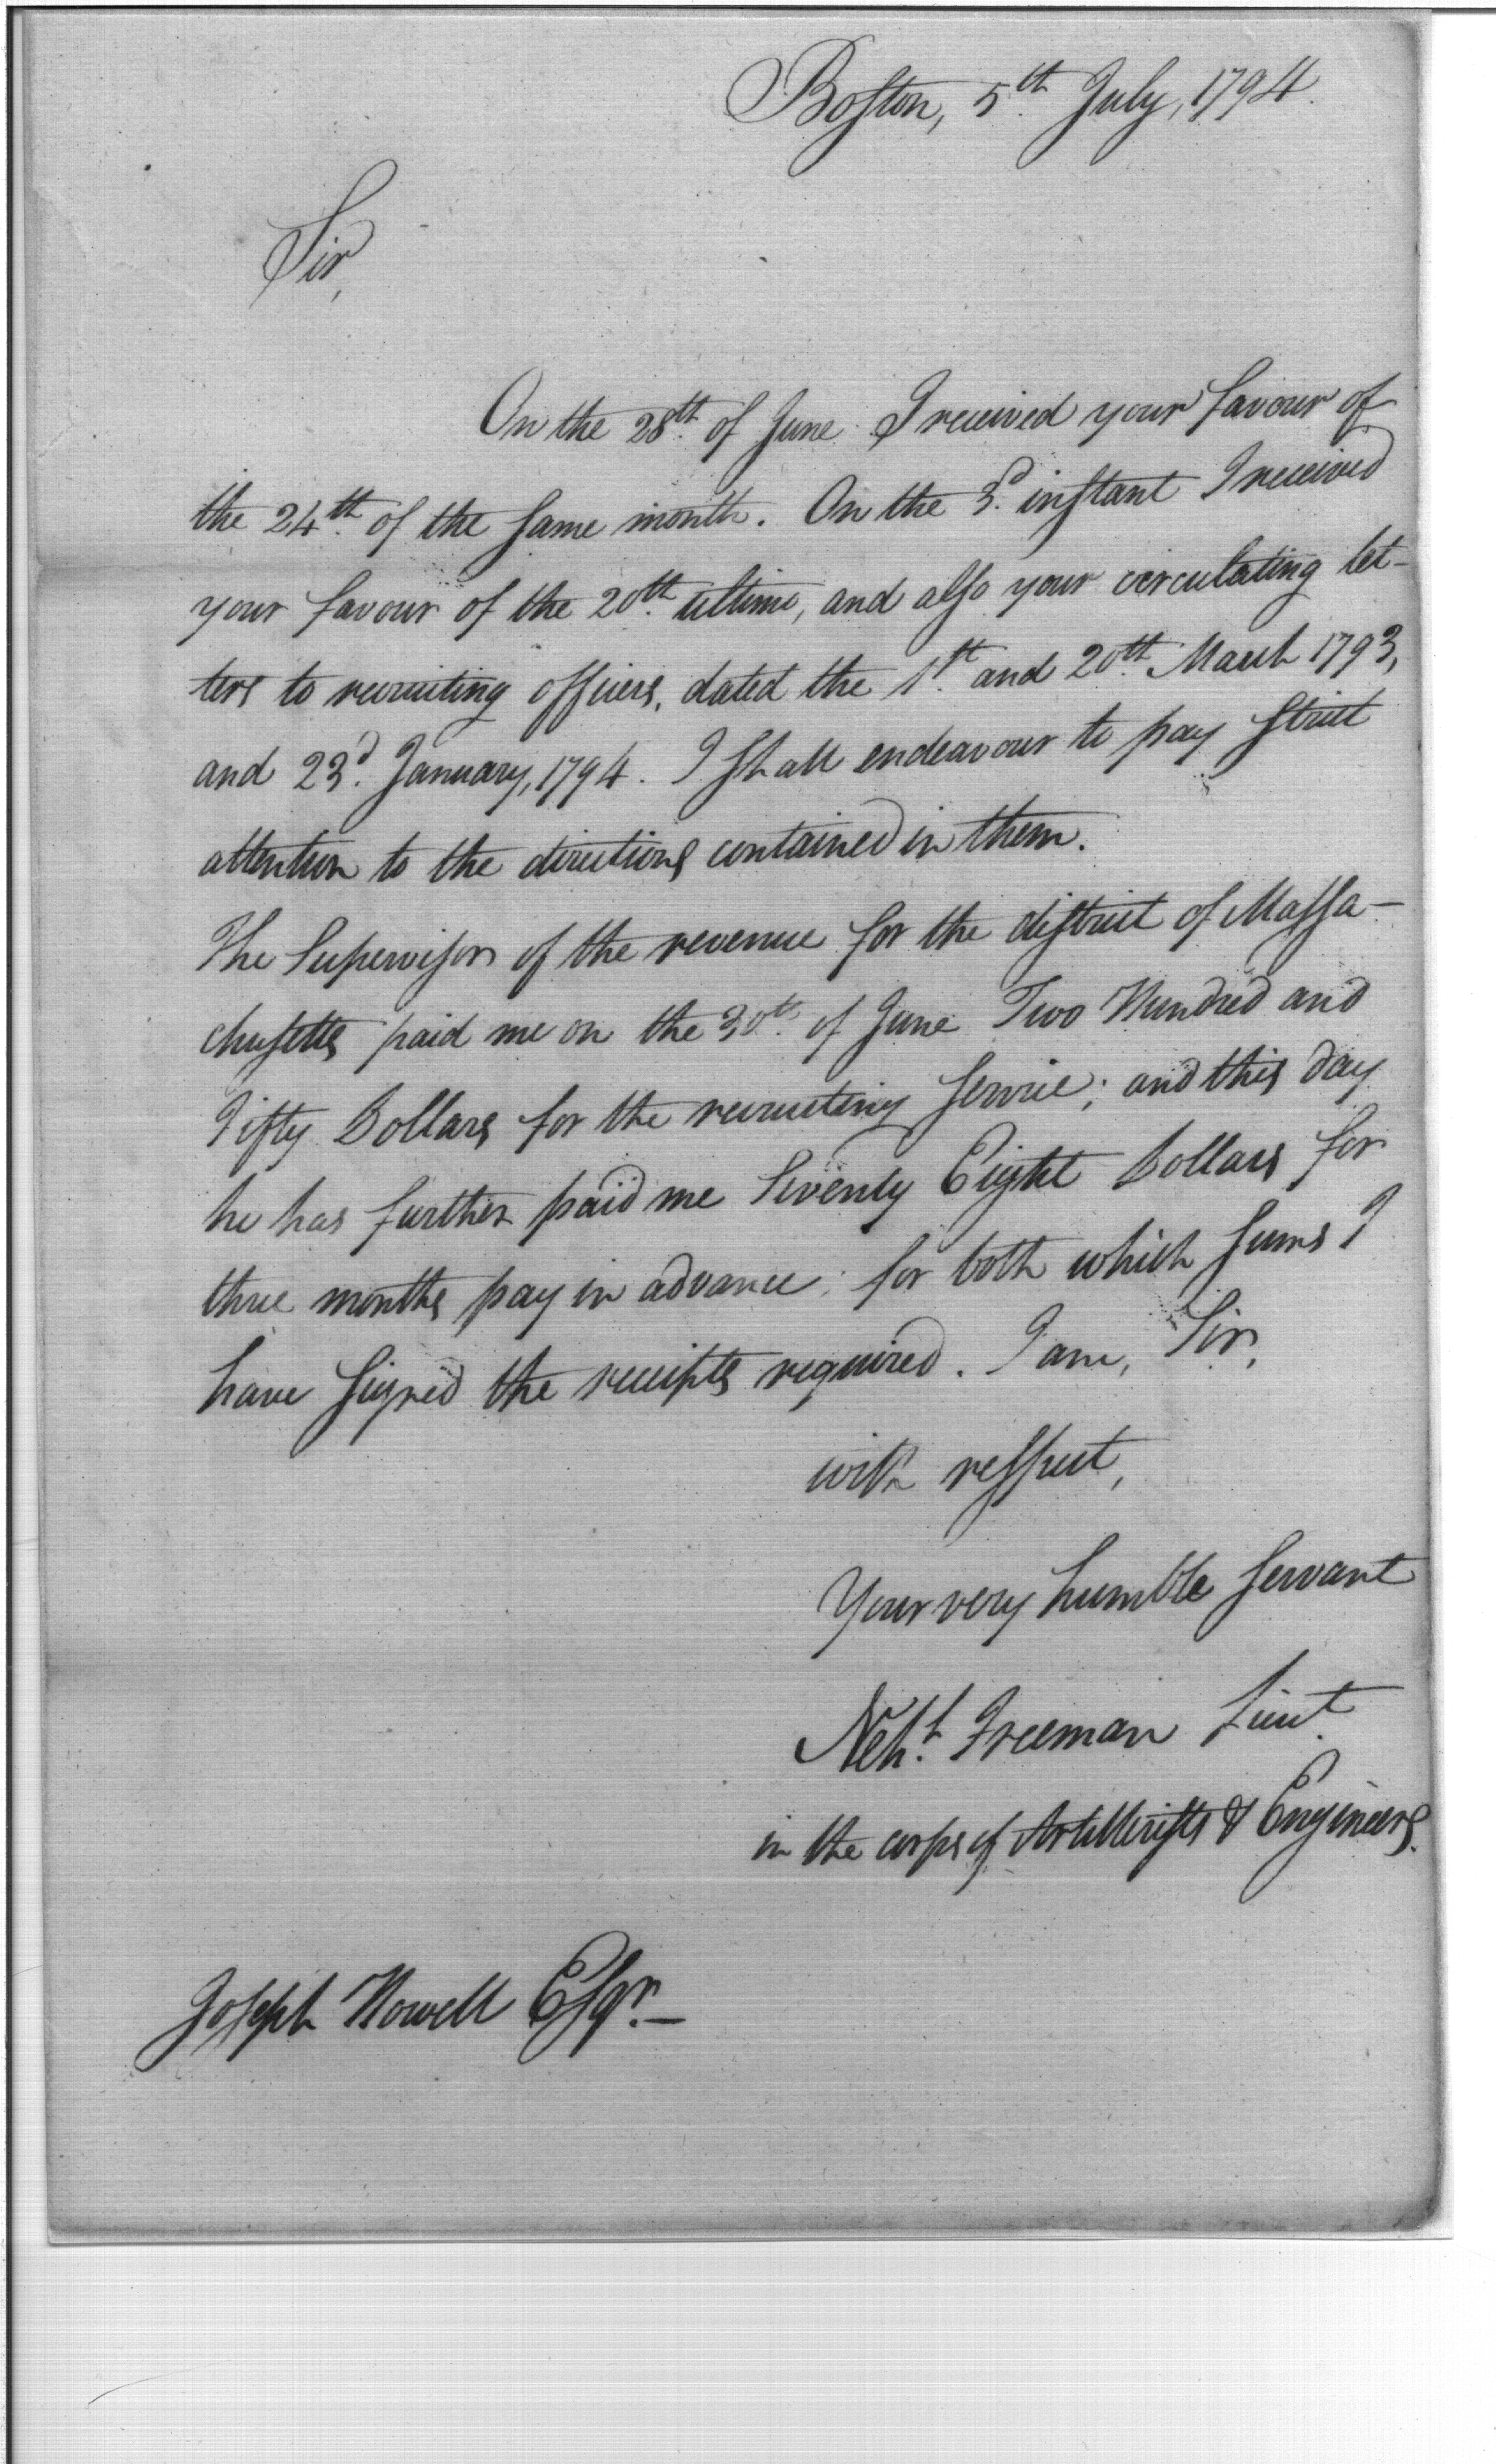 Boston, 5th July, 1794.
Sir,
On the 28th of June I received your favour of
the 24th of the same month. On the 3d instant I received
your favour of the 20th ultimo, and also your circulating let-
ters to recruiting officers, dated the 1st and 20th March 1793,
and 23d January, 1794. I shall endeavour to pay strict
attention to the directions contained in them.
The Supervisor of the revenue for the district of Massa-
chusetts paid me on the 30th of June Two Hundred and
Fifty Dollars for the recruiting service; and this day
he has further paid me Seventy Eight Dollars for
three months pay in advance; for both which sums I
have signed the receipts required. I am, Sir,
with respect,
Your very humble servant
Neh.h Freeman Lieut.
in the corps of Artillerists & Engineers.
Joseph Howell Esqr.—